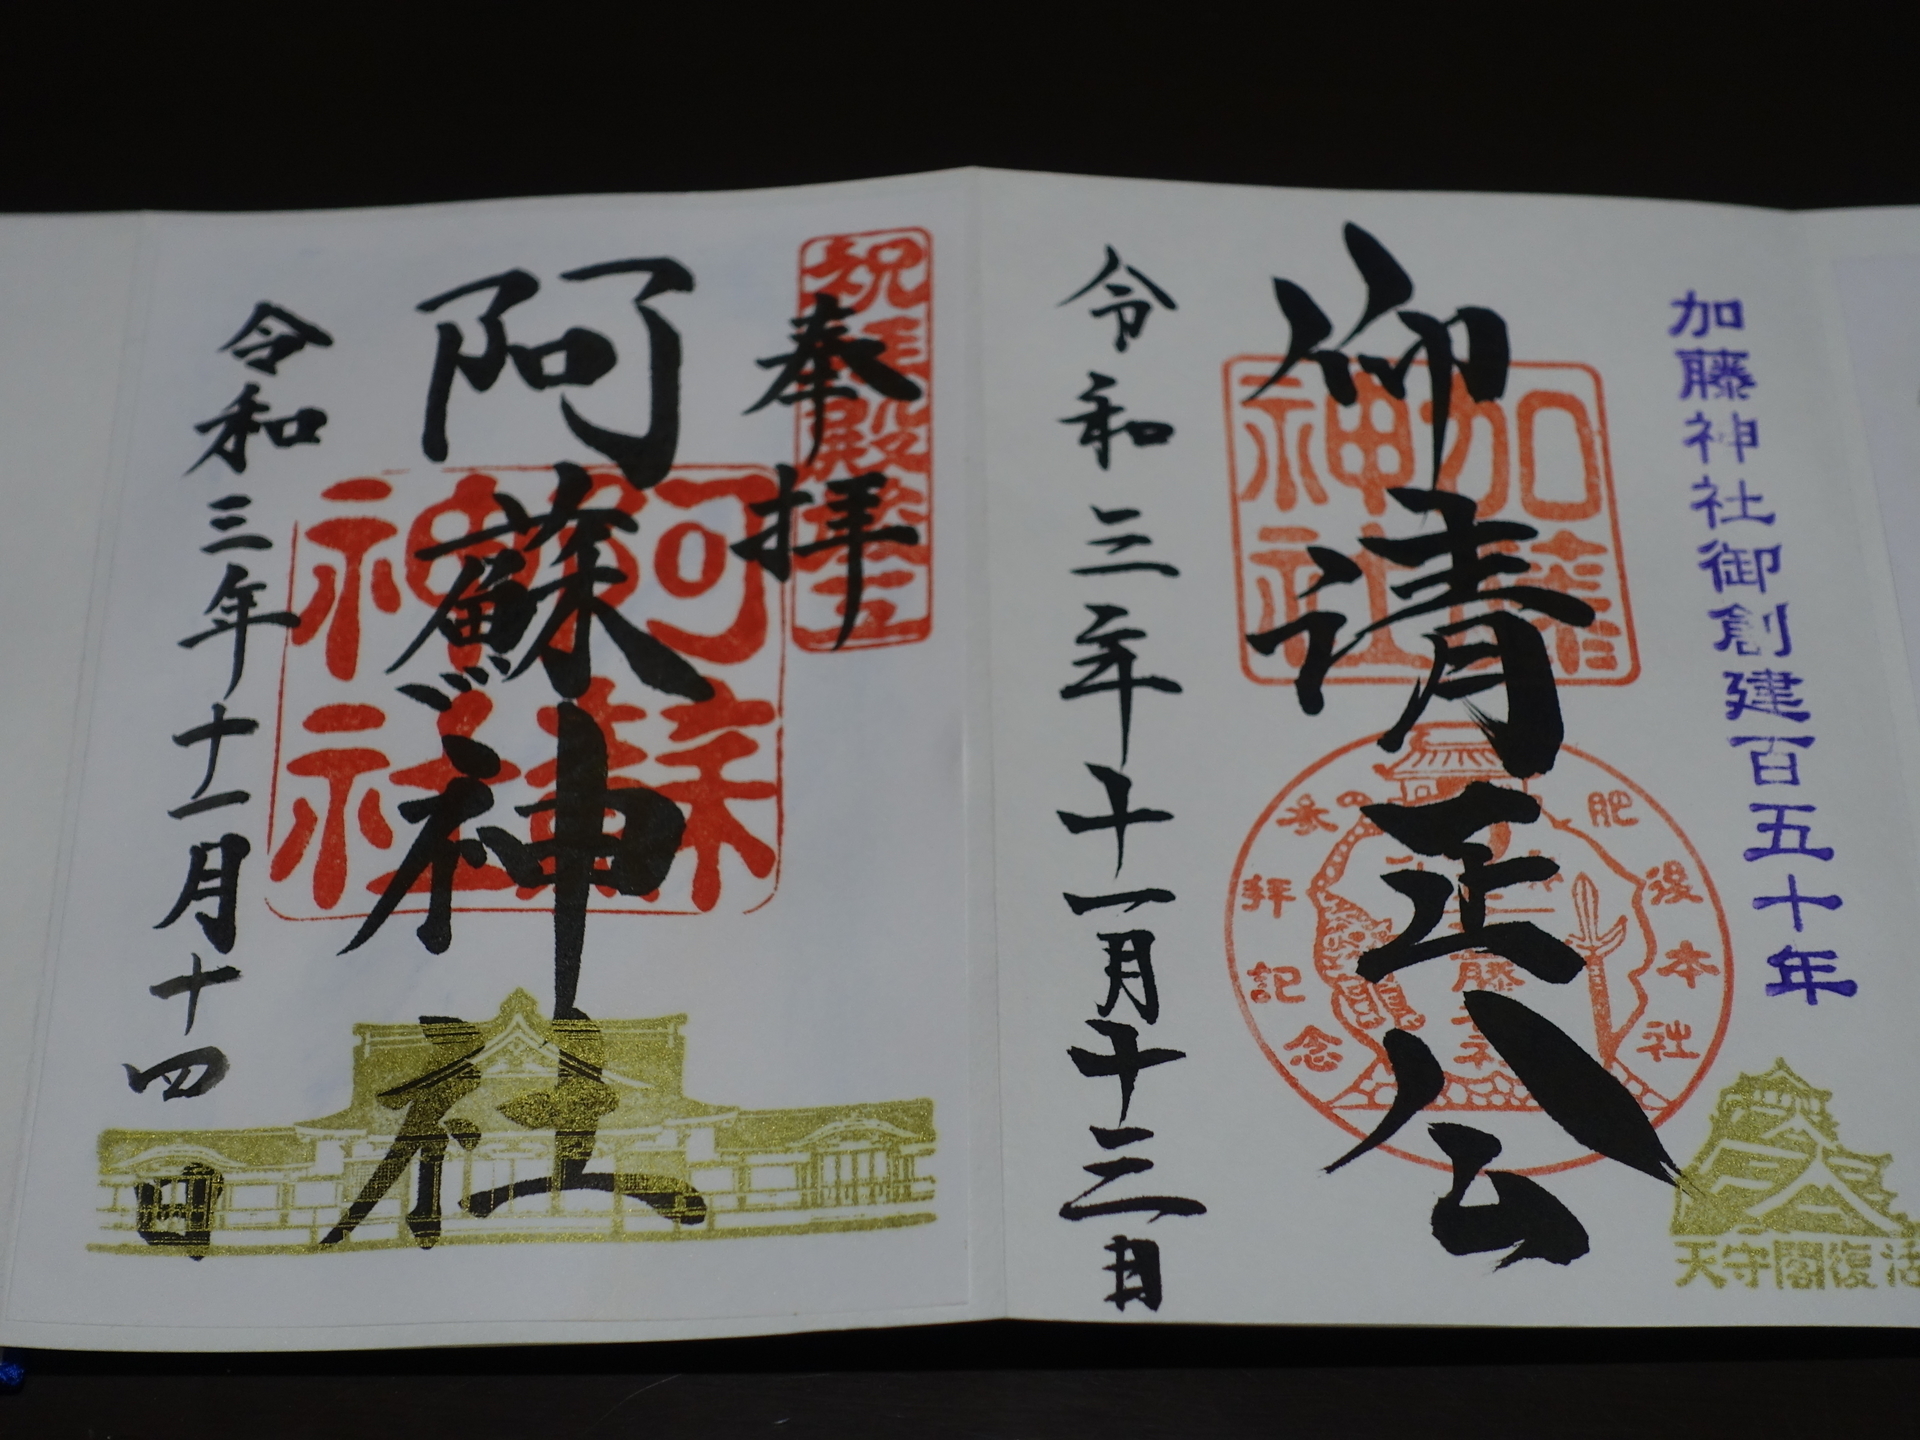 加藤神社御創建百五十年
仰清正公
加藤神社
肥後本社参拝記念
天守閣復活
令和三年十一月十三日
祝拝殿竣工
奉拝
阿蘇神社
阿蘇神社
令和三年十一月十四日